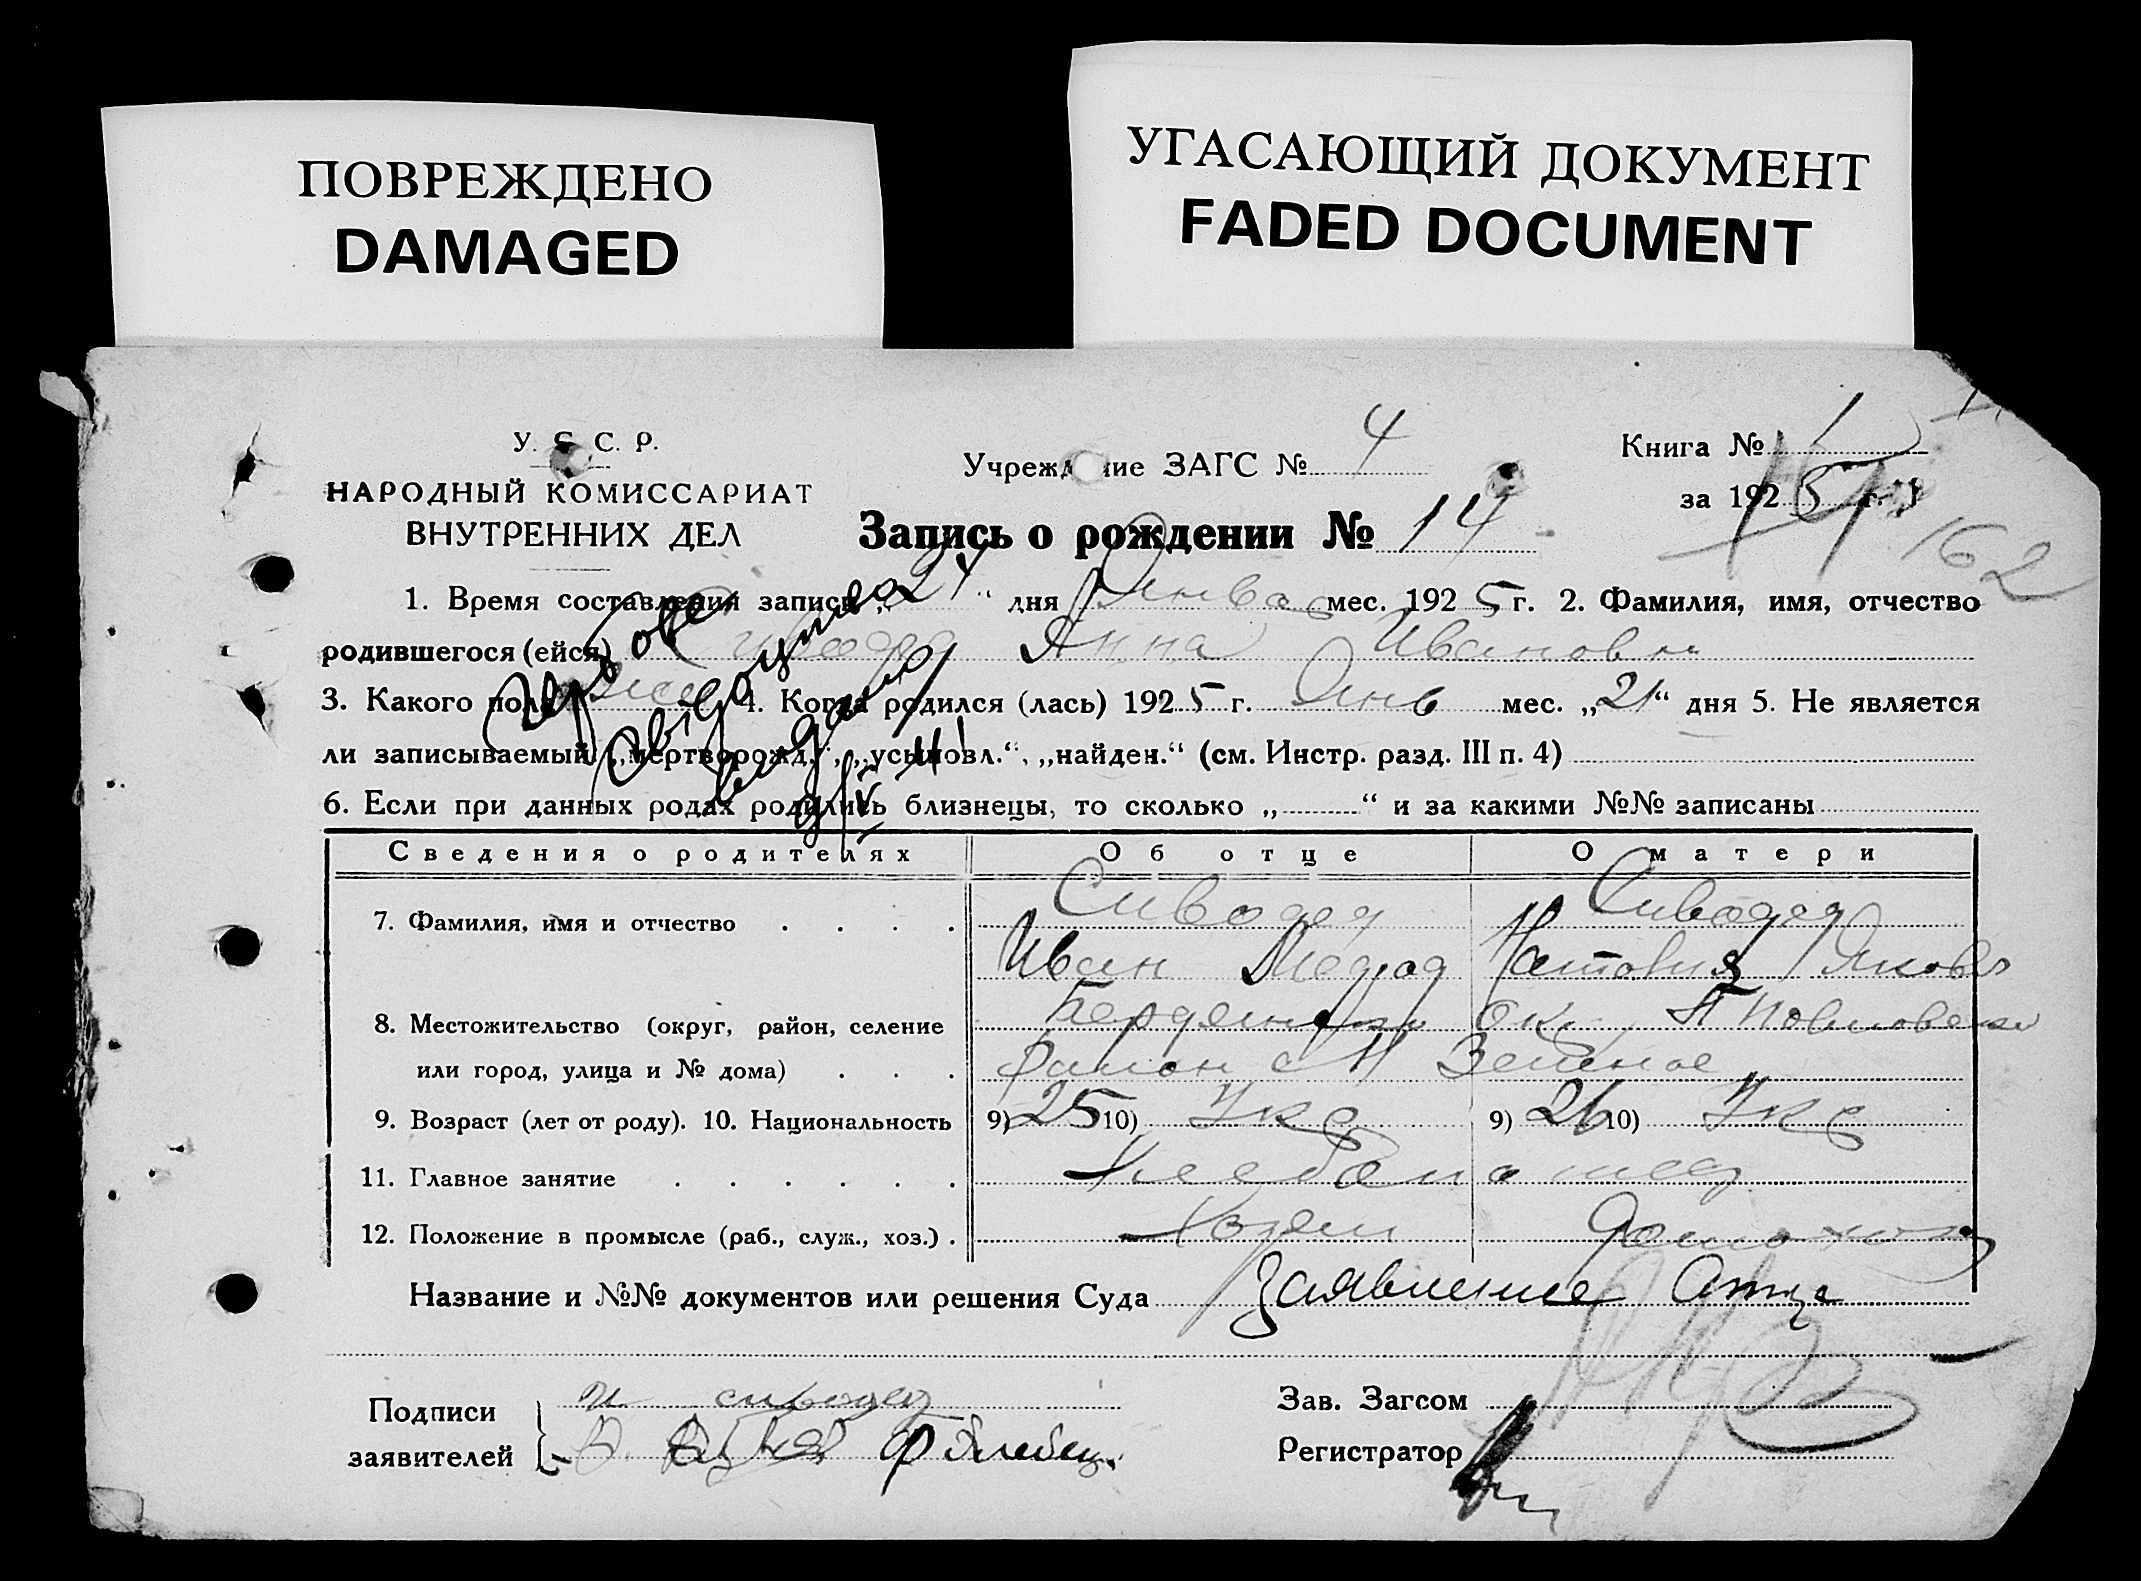 ПОВРЕЖДЕНО
DAMAGED
УГАСАЮЩИЙ ДОКУМЕНТ
FADED DOCUMENT
У. С. С. Р.
НАРОДНЫЙ КОМИССАРИАТ
ВНУТРЕННИХ ДЕЛ
Учреждение ЗАГС № 4
Книга № 1
за 1925 г.
162
Запись о рождении № 14
1. Время составления записи „24“ дня Января мес. 1925 г. 2. Фамилия, имя, отчество
родившегося (ейся) Сиводед Анна Ивановн
3. Какого пола жен 4. Когда родился (лась) 1925 г. Янв мес. „21“ дня 5. Не является
ли записываемый „мертворожд.“, „усыновл.“, „найден.“ (см. Инстр. разд. III п. 4)
6. Если при данных родах родились близнецы, то сколько „ “ и за какими №№ записаны
Сведения о родителях Об отце О матери
7. Фамилия, имя и отчество Сиводед Сиводед
Иван Яковл
8. Местожительство (округ, район, селение Окр
или город, улица и № дома) район с Н Зеленое
9. Возраст (лет от роду). 10. Национальность 9) 25 10) Укр 9) 26 10) Укр
11. Главное занятие Хлебопашед
12. Положение в промысле (раб., служ., хоз.) Хозяин домохоз
Название и №№ документов или решения Суда Заявление Отца
Подписи
заявителей
и сиводед
Зав. Загсом
Регистратор